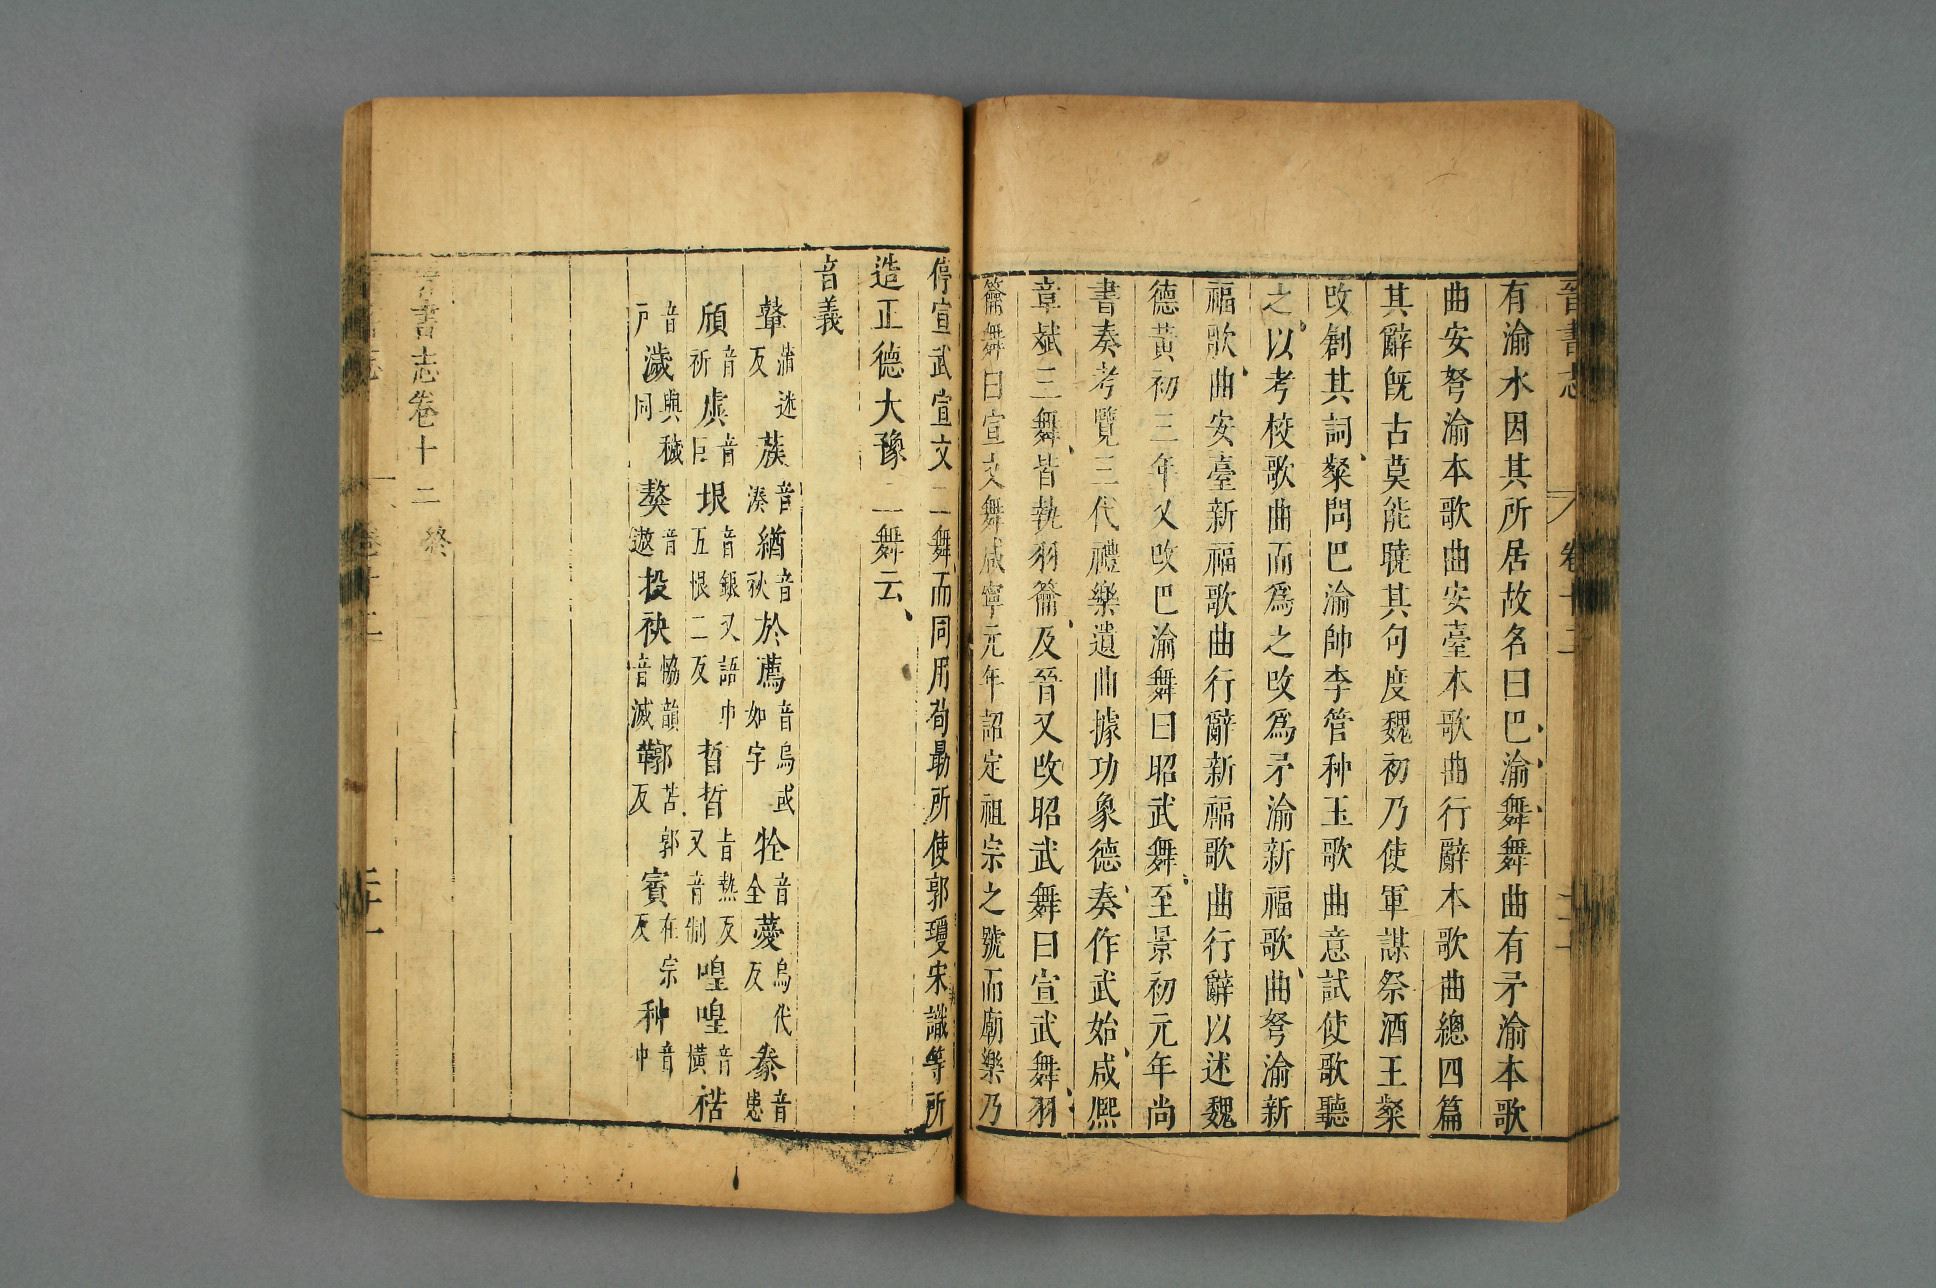 晉書志 卷十二
有渝水因其所居故名曰巴渝舞舞曲有矛渝本歌
曲安弩渝本歌曲安臺本歌曲行辭本歌曲總四篇
其辭旣古莫能曉其句度魏初乃使軍謀祭酒王粲
改創其詞粲問巴渝帥李管种玉歌曲意試使歌聽
之以考校歌曲而爲之改爲矛渝新福歌曲弩渝新
福歌曲安臺新福歌曲行辭新福歌曲行辭以述魏
德黃初三年又改巴渝舞曰昭武舞至景初元年尚
書奏考覽三代禮樂遺曲據功象德奏作武始咸熙
章斌三舞皆執羽籥及晉又改昭武舞曰宣武舞羽
籥舞曰宣文舞咸寧元年詔定祖宗之號而廟樂乃
停宣武宣文二舞而同用荀勗所使郭瓊宋識等所
造正德大豫二舞云
音義
鼙蒲迷反蔟音湊緧音秋於薦音烏或如字牷音全薆烏代反豢音患
頎音祈虡音巨垠音銀又語巾五恨二反晢晢旨熱反又音制喤喤音橫楛
音戶濊與穢同獒音遨投袂協韻音滅鞹苦郭反賨在宗反种音中
晉書志卷十二 終